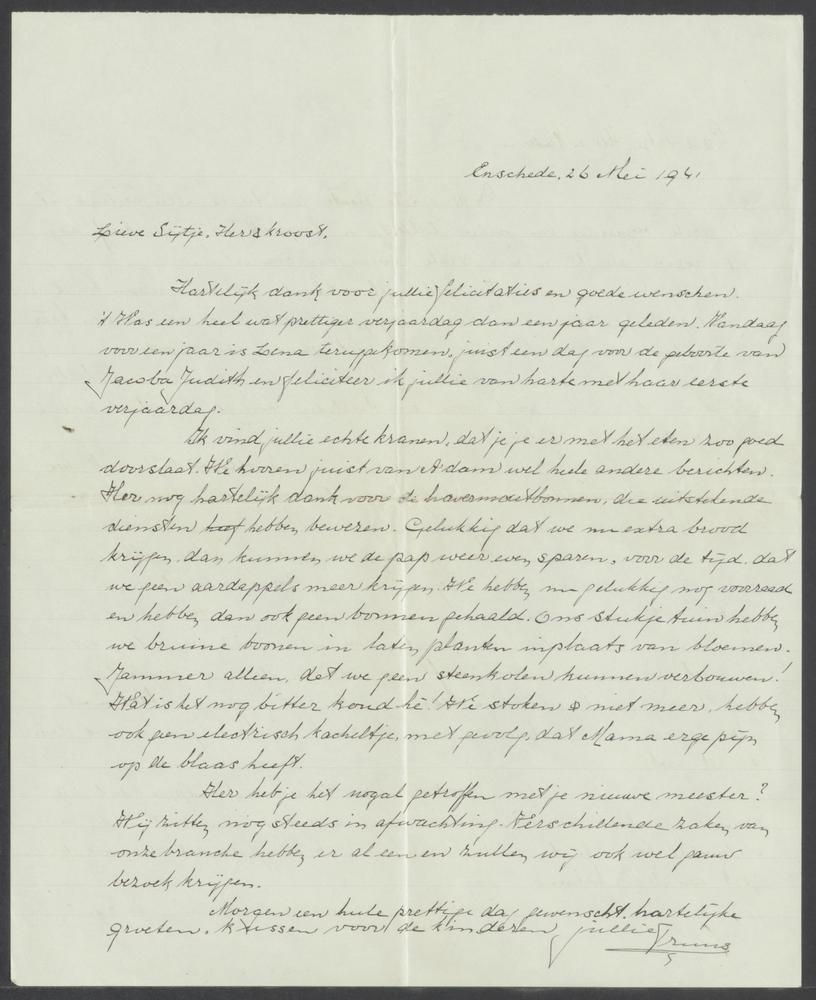 Enschede, 26 Mei 1941
Lieve Sijtje, Her & kroost,
Hartelijk dank voor jullie felicitaties en goede wenschen.
't Was een heel wat prettiger verjaardag dan een jaar geleden. Vandaag
voor een jaar is Lena teruggekomen, juist een dag voor de geboorte van
Jacoba Judith en feliciteer ik jullie van harte met haar eerste
verjaardag.
Ik vind jullie echte kranen, dat je je er met het eten zoo goed
doorslaat. We hooren juist van A'dam wel heele andere berichten.
Her nog hartelijk dank voor de havermoutbonnen, die uitstekende
diensten hebben bewezen. Gelukkig dat we nu extra brood
krijgen, dan kunnen we de pap weer even sparen, voor de tijd, dat
we geen aardappels meer krijgen. We hebben nu gelukkig nog voorraad
en hebben dan ook geen bonnen gehaald. Ons stukje tuin hebben
we bruine boonen in laten planten inplaats van bloemen.
Jammer alleen, dat we geen steenkolen kunnen verbouwen!
Wat is het nog bitter koud hè! We stoken niet meer, hebben
ook geen electrisch kacheltje, met gevolg, dat Mama erge pijn
op de blaas heeft.
Her heb je het nogal getroffen met je nieuwe meester?
Wij zitten nog steeds in afwachting. Verschillende zaken van
onze branche hebben er al een en zullen wij ook wel gauw
bezoek krijgen.
Morgen een heele prettige dag gewenscht, hartelijke
groeten, kussen voor de kinderen, jullie Truus